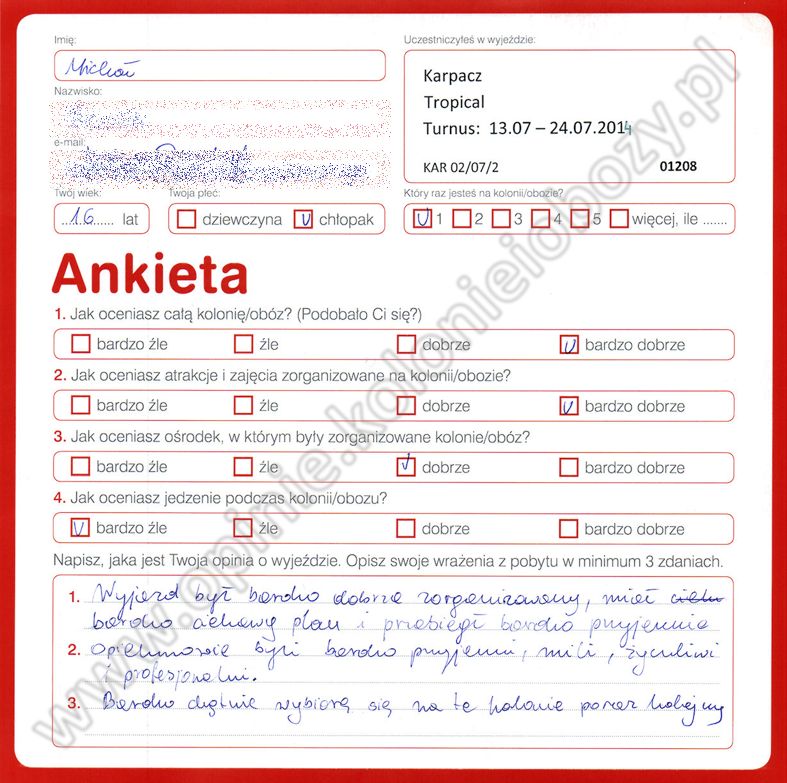 Imię:
Michał
Nazwisko:
e-mail:
Twój wiek:
16 lat
Twoja płeć:
dziewczyna v chłopak
Uczestniczyłeś w wyjeździe:
Karpacz
Tropical
Turnus: 13.07 – 24.07.2014
KAR 02/07/2 01208
Który raz jesteś na kolonii/obozie?
v 1 2 3 4 5 więcej, ile .......
Ankieta
1. Jak oceniasz całą kolonię/obóz? (Podobało Ci się?)
bardzo źle źle dobrze v bardzo dobrze
2. Jak oceniasz atrakcje i zajęcia zorganizowane na kolonii/obozie?
bardzo źle źle dobrze v bardzo dobrze
3. Jak oceniasz ośrodek, w którym były zorganizowane kolonie/obóz?
bardzo źle źle v dobrze bardzo dobrze
4. Jak oceniasz jedzenie podczas kolonii/obozu?
v bardzo źle źle dobrze bardzo dobrze
Napisz, jaka jest Twoja opinia o wyjeździe. Opisz swoje wrażenia z pobytu w minimum 3 zdaniach.
1. Wyjazd był bardzo dobrze zorganizowany, miał
bardzo ciekawy plan i przebiegł bardzo przyjemnie
2. Opiekunowie byli bardzo przyjemni, mili, życzliwi
i profesjonalni.
3. Bardzo chętnie wybiorę się na te kolonie poraz kolejny
www.opinie.kolonieiobozy.pl